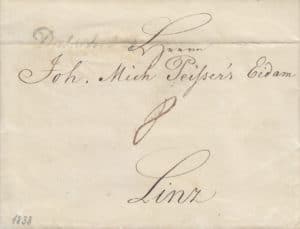 Herrn
Joh. Mich Peißer's Eidam
8
Linz
1838